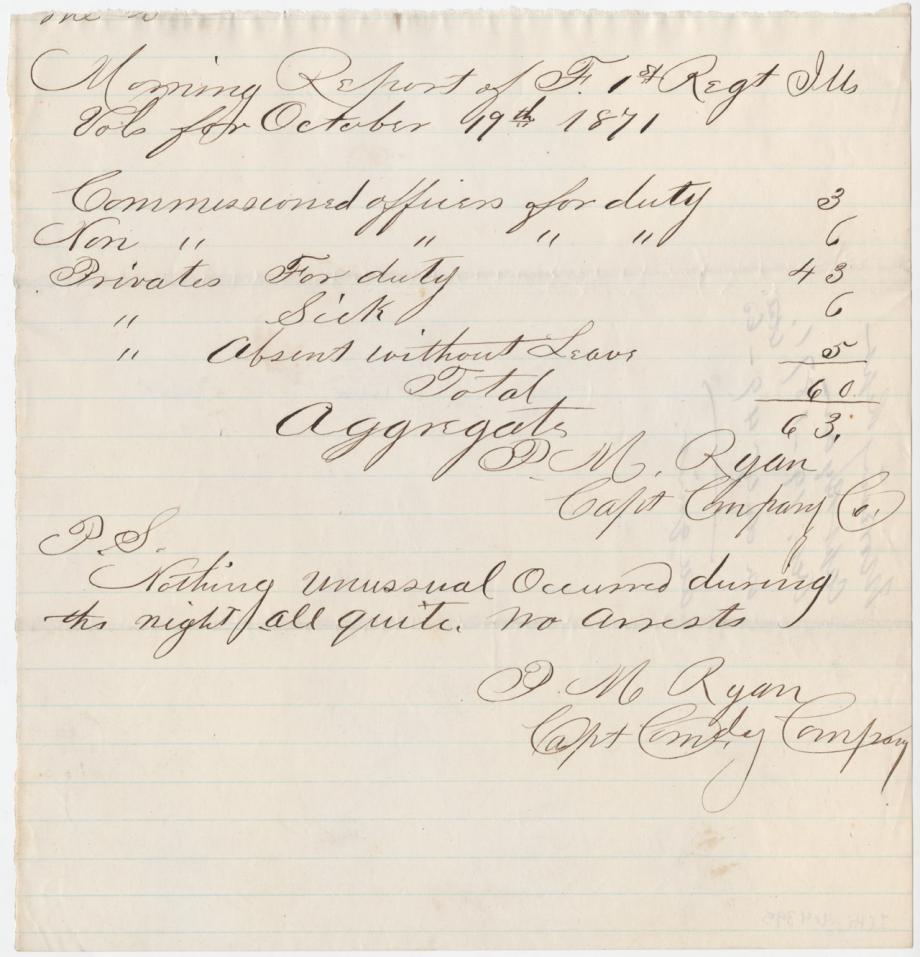 Morning Report of F. 1st Regt Ills
Vols for October 19th 1871
Commissioned officers for duty 3
Non " " " " 6
Privates For duty 43
" Sick 6
" Absent without Leave 5
Total 60
Aggregate 63.
P. M. Ryan
Capt Company
P.S.
Nothing unussual Occurred during
the night all quite. No Arrests
P. M Ryan
Capt Comdg Company